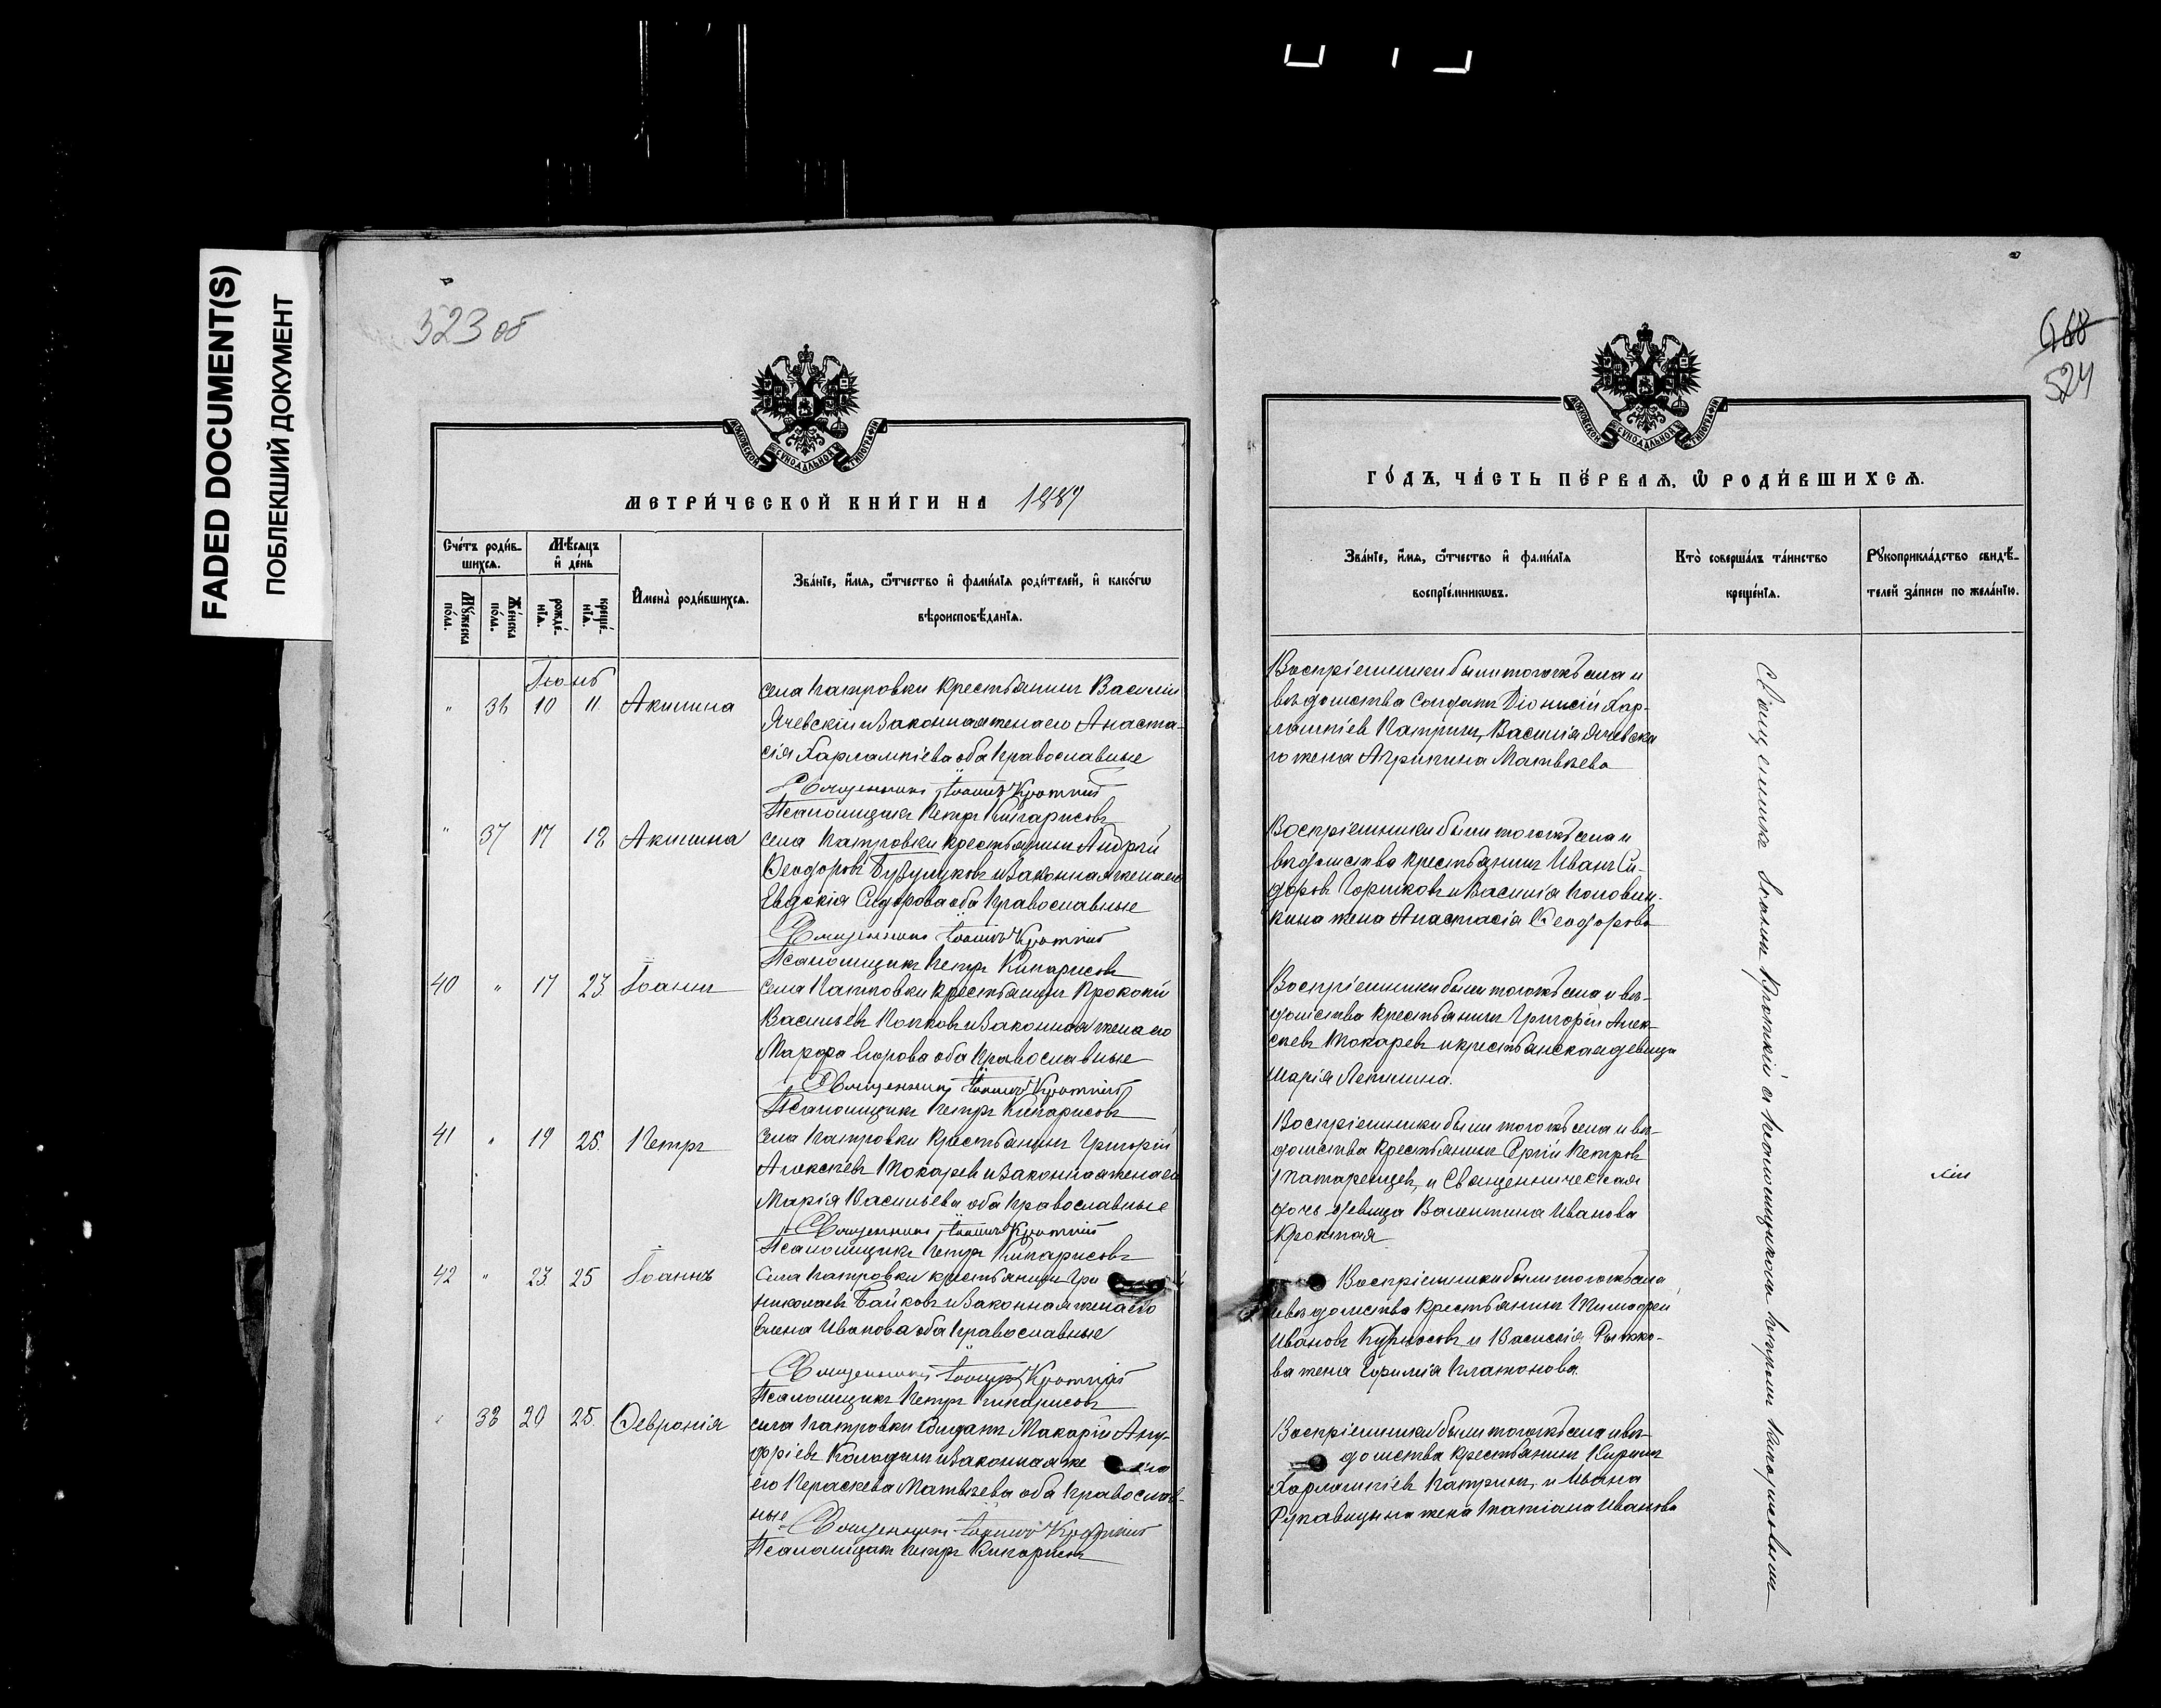 FADED DOCUMENT(S)
ПОБЛЕКШИЙ ДОКУМЕНТ
523 об
МОСКОВСКОЙ СѴНОДАЛЬНОЙ ТИПОГРАФІИ
МЕТРИ́ЧЕСКОЙ КНИ́ГИ НА 1887
Сче́тъ роди́в-
шихсѧ.
Мꙋ́жеска
по́ла.
Же́нска
по́ла.
Мѣ́сѧцъ
и҆ де́нь
рожде́-
нїѧ.
креще́-
нїѧ.
И҆мена̀ роди́вшихсѧ.
Зва́нїе, и҆́мѧ, ѻ҆́тчество и҆ фами́лїѧ роди́телей, и҆ како́гѡ
вѣроисповѣ́данїѧ.
Іюнь
" 36 10 11. Акилина
села Патровки крестьянинъ Василій
Ячевскій и законная жена его Анаста-
сія Харлампіева оба православные
Священникъ Іоаннъ Кроткій
Псаломщикъ Петръ Кипарисовъ
" 37 17 18 Акилина
села Патровки крестьянинъ Андрей
Ѳеодоровъ и законная жена его
Евдокія Сидорова оба православные
Священникъ Іоаннъ Кроткій
Псаломщикъ Петръ Кипарисовъ
40 " 17 23 Іоаннъ
села Патровки крестьянинъ Прокопій
Васильевъ Попковъ и законная жена его
Марфа Егорова оба православные
Священникъ Іоаннъ Кроткій
Псаломщикъ Петръ Кипарисовъ
41 " 19 25. Петръ
села Патровки крестьянинъ Григорій
Алексѣевъ Токаревъ и законная жена его
Марія Васильева оба православные
Священникъ Іоаннъ Кроткій
Псаломщикъ Петръ Кипарисовъ
42 " 23 25 Іоаннъ
Села Патровки крестьянинъ Гри
Николаевъ Байковъ и законная жена его
Елена Иванова оба православные
Священникъ Іоаннъ Кроткій
Псаломщикъ Петръ Кипарисовъ
" 38 20 25. Ѳевронія
села Патровки Солдатъ Макарій Ану-
фріевъ Колодинъ и законная жена
его Параскева Матвѣева оба православ-
ные
Священникъ Іоаннъ Кроткій
Псаломщикъ Петръ Кипарисовъ
668
524
МОСКОВСКОЙ СѴНОДАЛЬНОЙ ТИПОГРАФІИ
ГО́ДЪ, ЧА́СТЬ ПЕ́РВАѦ, Ѽ РОДИ́ВШИХСѦ.
Зва́нїе, и҆́мѧ, ѻ҆́тчество и҆ фами́лїѧ
воспрїе́мникѡвъ.
Кто̀ соверша́лъ та́инство
креще́нїѧ.
Рꙋкоприкла́дство свидѣ́-
телей за́писи по жела́нїю.
Воспріемники были того жъ села и
вѣдомства Солдатъ Діонисій Хар-
лампіевъ Патринъ, Василія Ячевска
го жена Агрипина Матвѣева
Воспріемники были того жъ села и
вѣдомства крестьянинъ Иванъ Си-
доровъ Горшковъ и Василія Половин-
кина жена Анастасія Ѳеодорова
Воспріемники были того жъ села и вѣ-
домства крестьянинъ Григорій Алек-
сѣевъ Токаревъ и крестьянская дѣвица
Марія Лепилина.
Воспріемники были того жъ села и вѣ-
домства крестьянинъ Сергій Петровъ
Татаренцевъ, и Священническая
дочь дѣвица Валентина Иванова
Кроткая
Воспріемники были того жъ села
и вѣдомства крестьянинъ Тимофей
Ивановъ Курносовъ и Василія Рыжко-
ва жена Платонова.
Воспріемники были того жъ села и вѣ-
домства крестьянинъ Кирилъ
Харлампіевъ Патринъ, и Ивана
Рукавицына жена Татіана Иванова
Священникъ Іоаннъ Кроткій съ псаломщикомъ Петромъ Кипарисовымъ